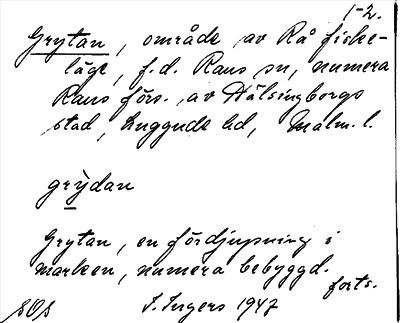 1-2.
Grytan, område av Rå fiske-
läge, f.d. Raus sn, numera
Raus förs. av Hälsingborgs
stad, Luggude hd, Malm. l.
grỳdan
Grytan, en fördjupning i
marken, numera bebyggd.
forts.
I. Ingers 1947